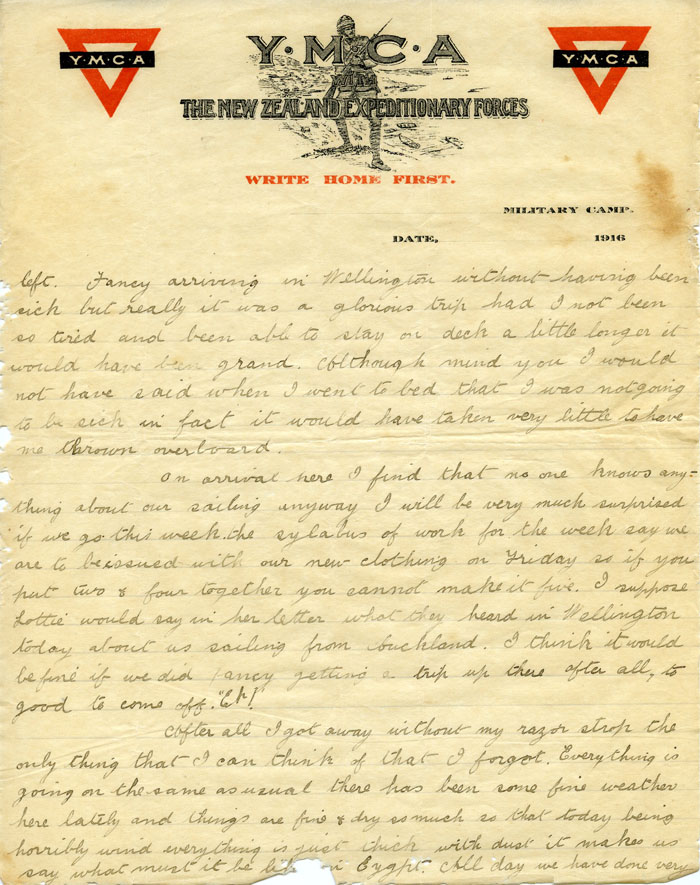 Y·M·C·A
Y·M·C·A
Y·M·C·A
WITH
THE NEW ZEALAND EXPEDITIONARY FORCES
WRITE HOME FIRST.
MILITARY CAMP.
DATE, 1916
left. Fancy arriving in Wellington without having been
sick but really it was a glorious trip had I not been
so tired and been able to stay on deck a little longer it
would have been grand. Although mind you I would
not have said when I went to bed that I was not going
to be sick in fact it would have taken very little to have
me thrown overboard.
On arrival here I find that no one knows any=
thing about our sailing anyway I will be very much surprised
if we go this week. the sylabus of work for the week say we
are to be issued with our new clothing on Friday so if you
put two & four together you cannot make it five. I suppose
Lottie would say in her letter what they heard in Wellington
today about us sailing from Auckland. I think it would
be fine if we did fancy getting a trip up there after all, to
good to come off. "Eh!
After all I got away without my razor strop the
only thing that I can think of that I forgot. Everything is
going on the same as usual there has been some fine weather
here lately and things are fine & dry so much so that today being
horribly wind everything is just thick with dust it makes us
say what must it be like in Eygpt. All day we have done very